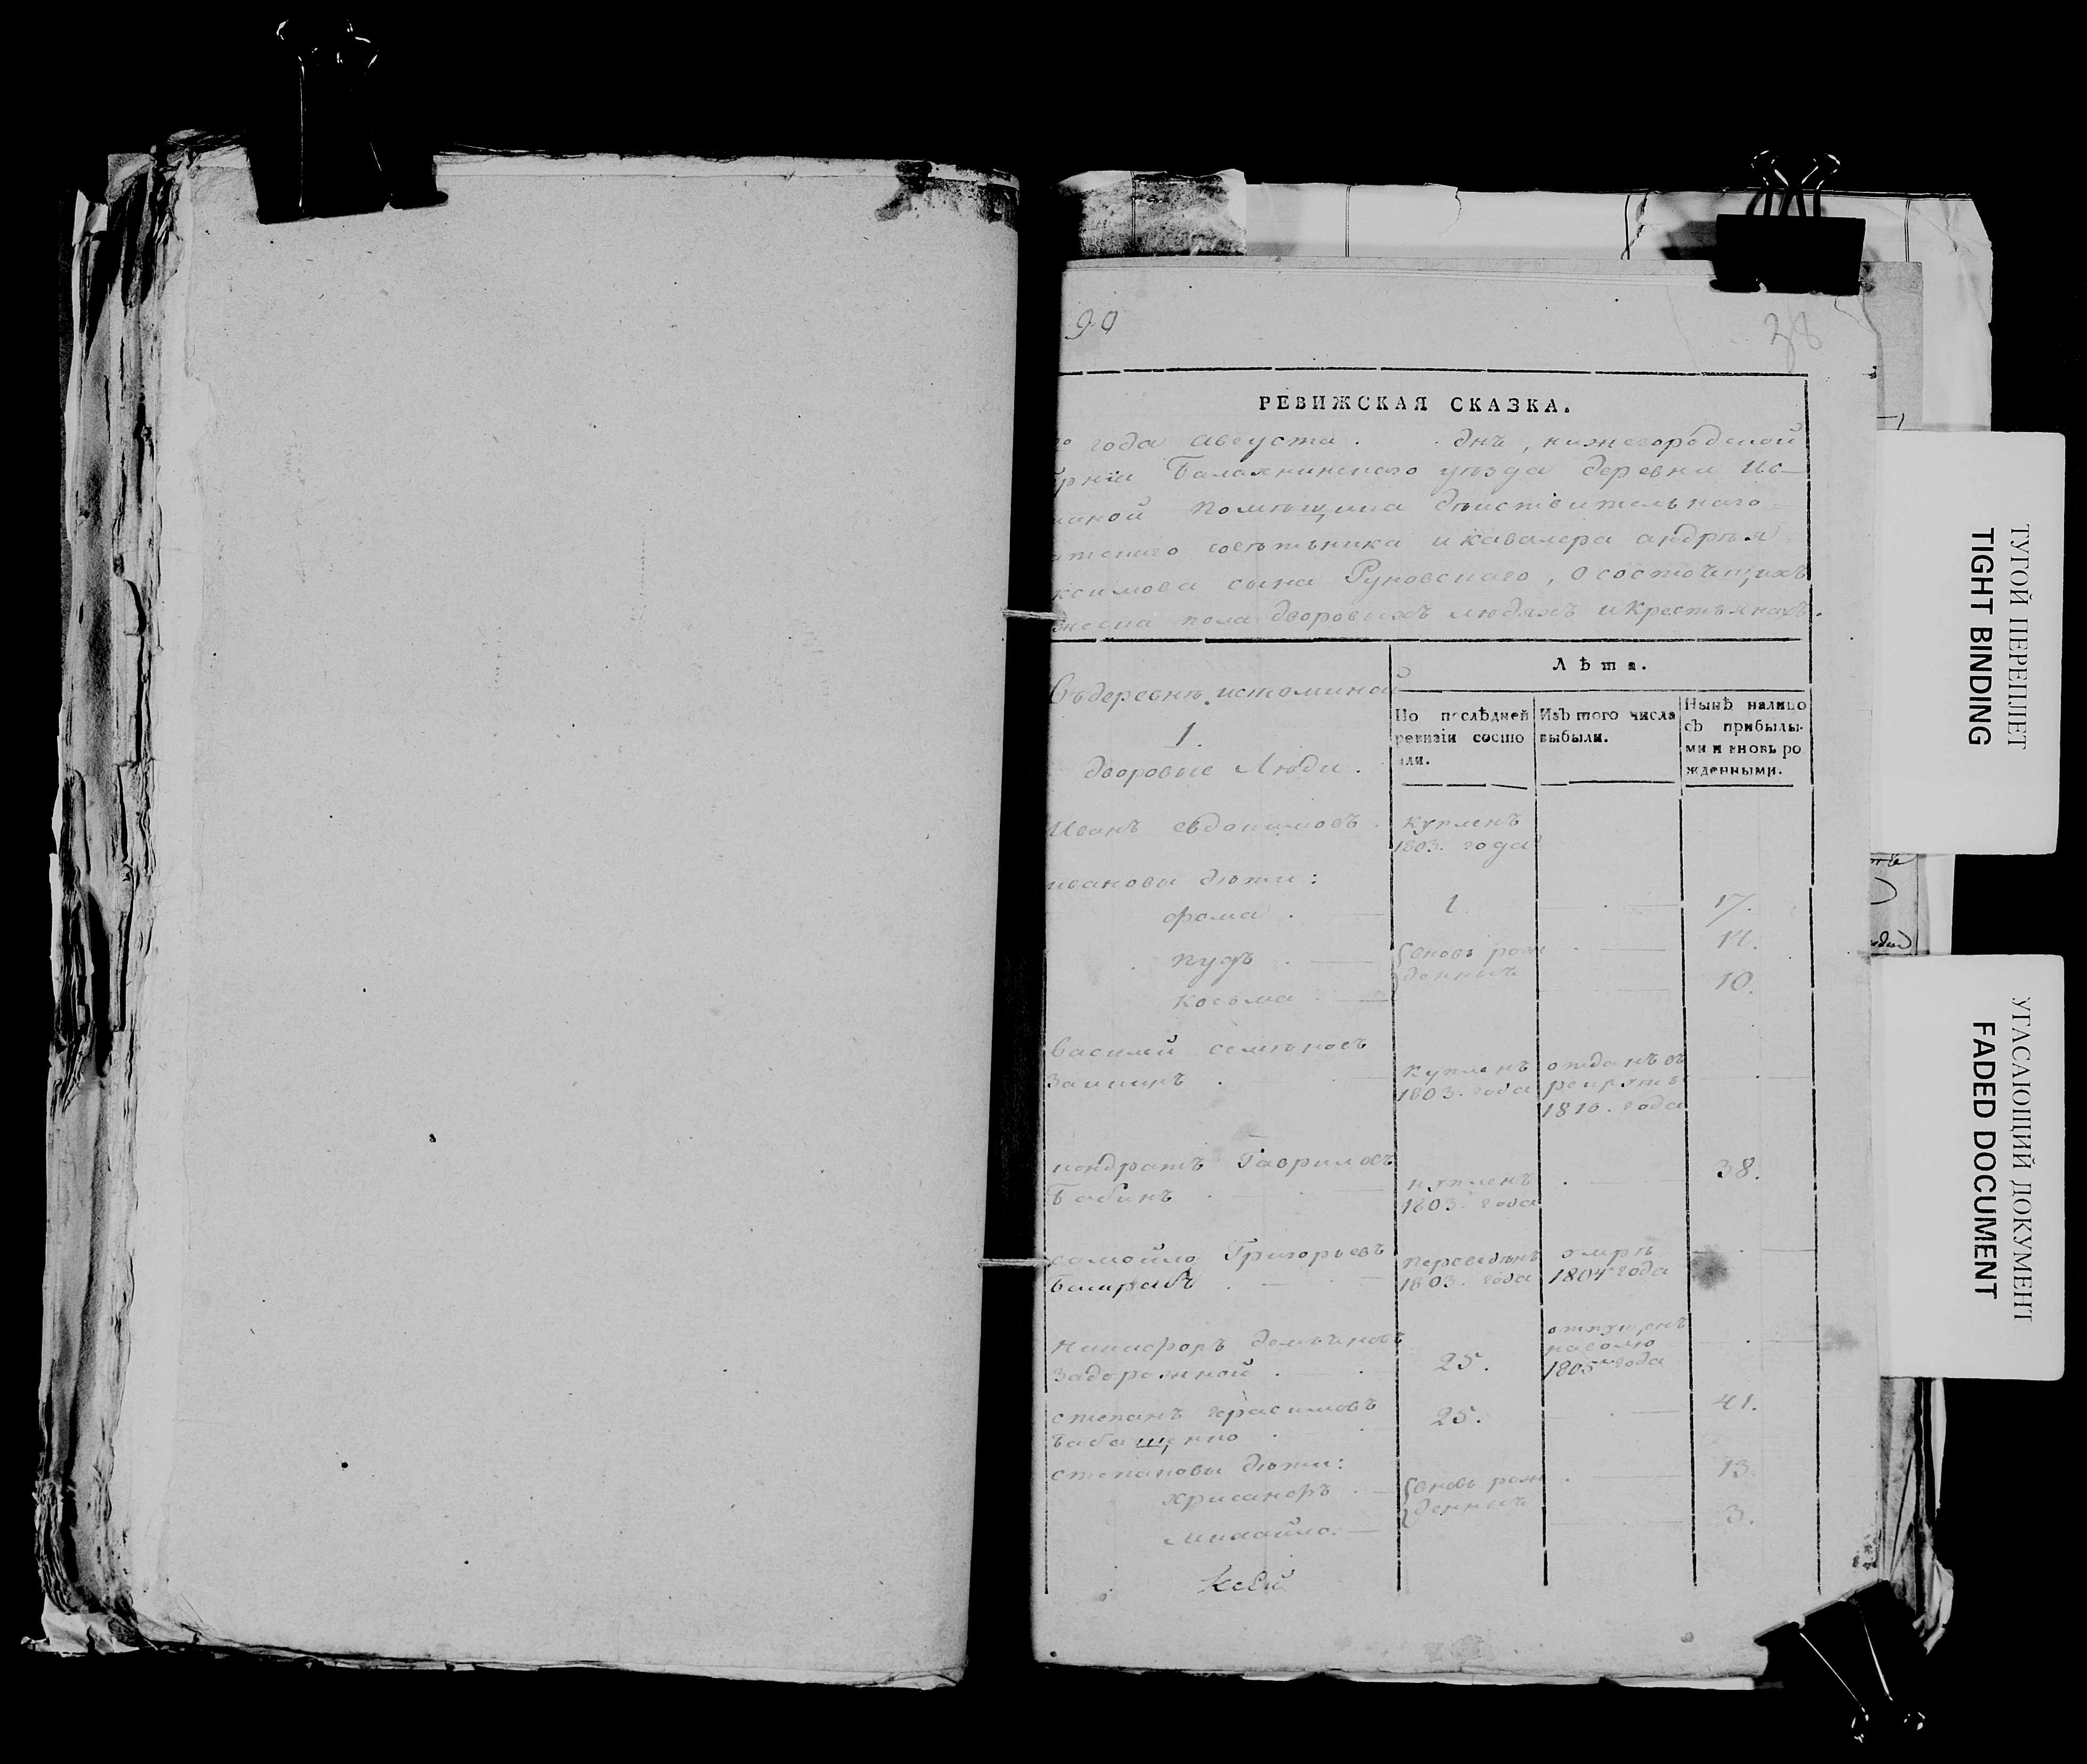 90
38
РЕВИЖСКАЯ СКАЗКА.
го года августа . . днъ , нижегородской
рніи Балахнинского уѣзда деревни Ис-
маной помѣщика дѣиствительнаго
тского совѣтъника и кавалера андрѣя
ксимова сына Руновскаго , о состоъщихъ
жеска пола дворовыхъ людяхъ и крестьянахъ.
Въ деревнѣ истоминой
1.
дворовые люди .
Лѣта.
По послѣдней ревизіи состояли.
Изъ того числа выбыли.
Нынѣ налицо съ прибылыми и вновь рожденными.
Иванъ евдокимовъ . купленъ
1803. года
ивановы дѣти :
фома . 1 . 17.
пудъ . вновь рож . 12.
денныхъ
косьма . 10.
василий семѣновъ
купленъ отданъ въ
1803. года рекруты
1810. года
кондратъ Гавриловъ 38.
Бабинъ . купленъ
1803. года
самойло Григорьевъ переведѣнъ умрѣ
1803. года 1804 года
Никифоръ демьъновъ отпущенъ
задорожной . 25. наволю
1805 года
степанъ герасимовъ 25. 41.
бабащенко .
степановы дѣти:
хрисанфъ . вновь рож . 13.
денныхъ
михайло. 3.
ТУГОЙ ПЕРЕПЛЕТ
TIGHT BINDING
УГАСАЮЩИЙ ДОКУМЕНТ
FADED DOCUMENT